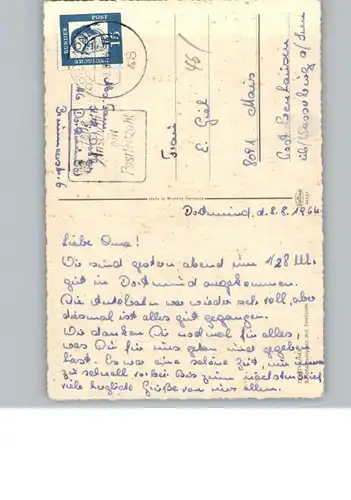 DEUTSCHE BUNDESPOST
15
Anschrift
mit
Postleitzahl
Frau
E. Giel
8091 Mais
Post
Dortmund, d. 8.8.1964
Liebe Oma!
Wir sind gestern abend um 1/2 8 Uhr
gut in Dortmund angekommen.
Die Autobahn war wieder sehr voll, aber
diesmal ist alles gut gegangen.
Wir danken Dir nochmal für alles,
was Du für uns getan und gegeben
hast. Es war eine schöne Zeit, nur immer
zu schnell vorbei. Bis zum nächsten Brief
viele herzliche Grüße von uns allen.